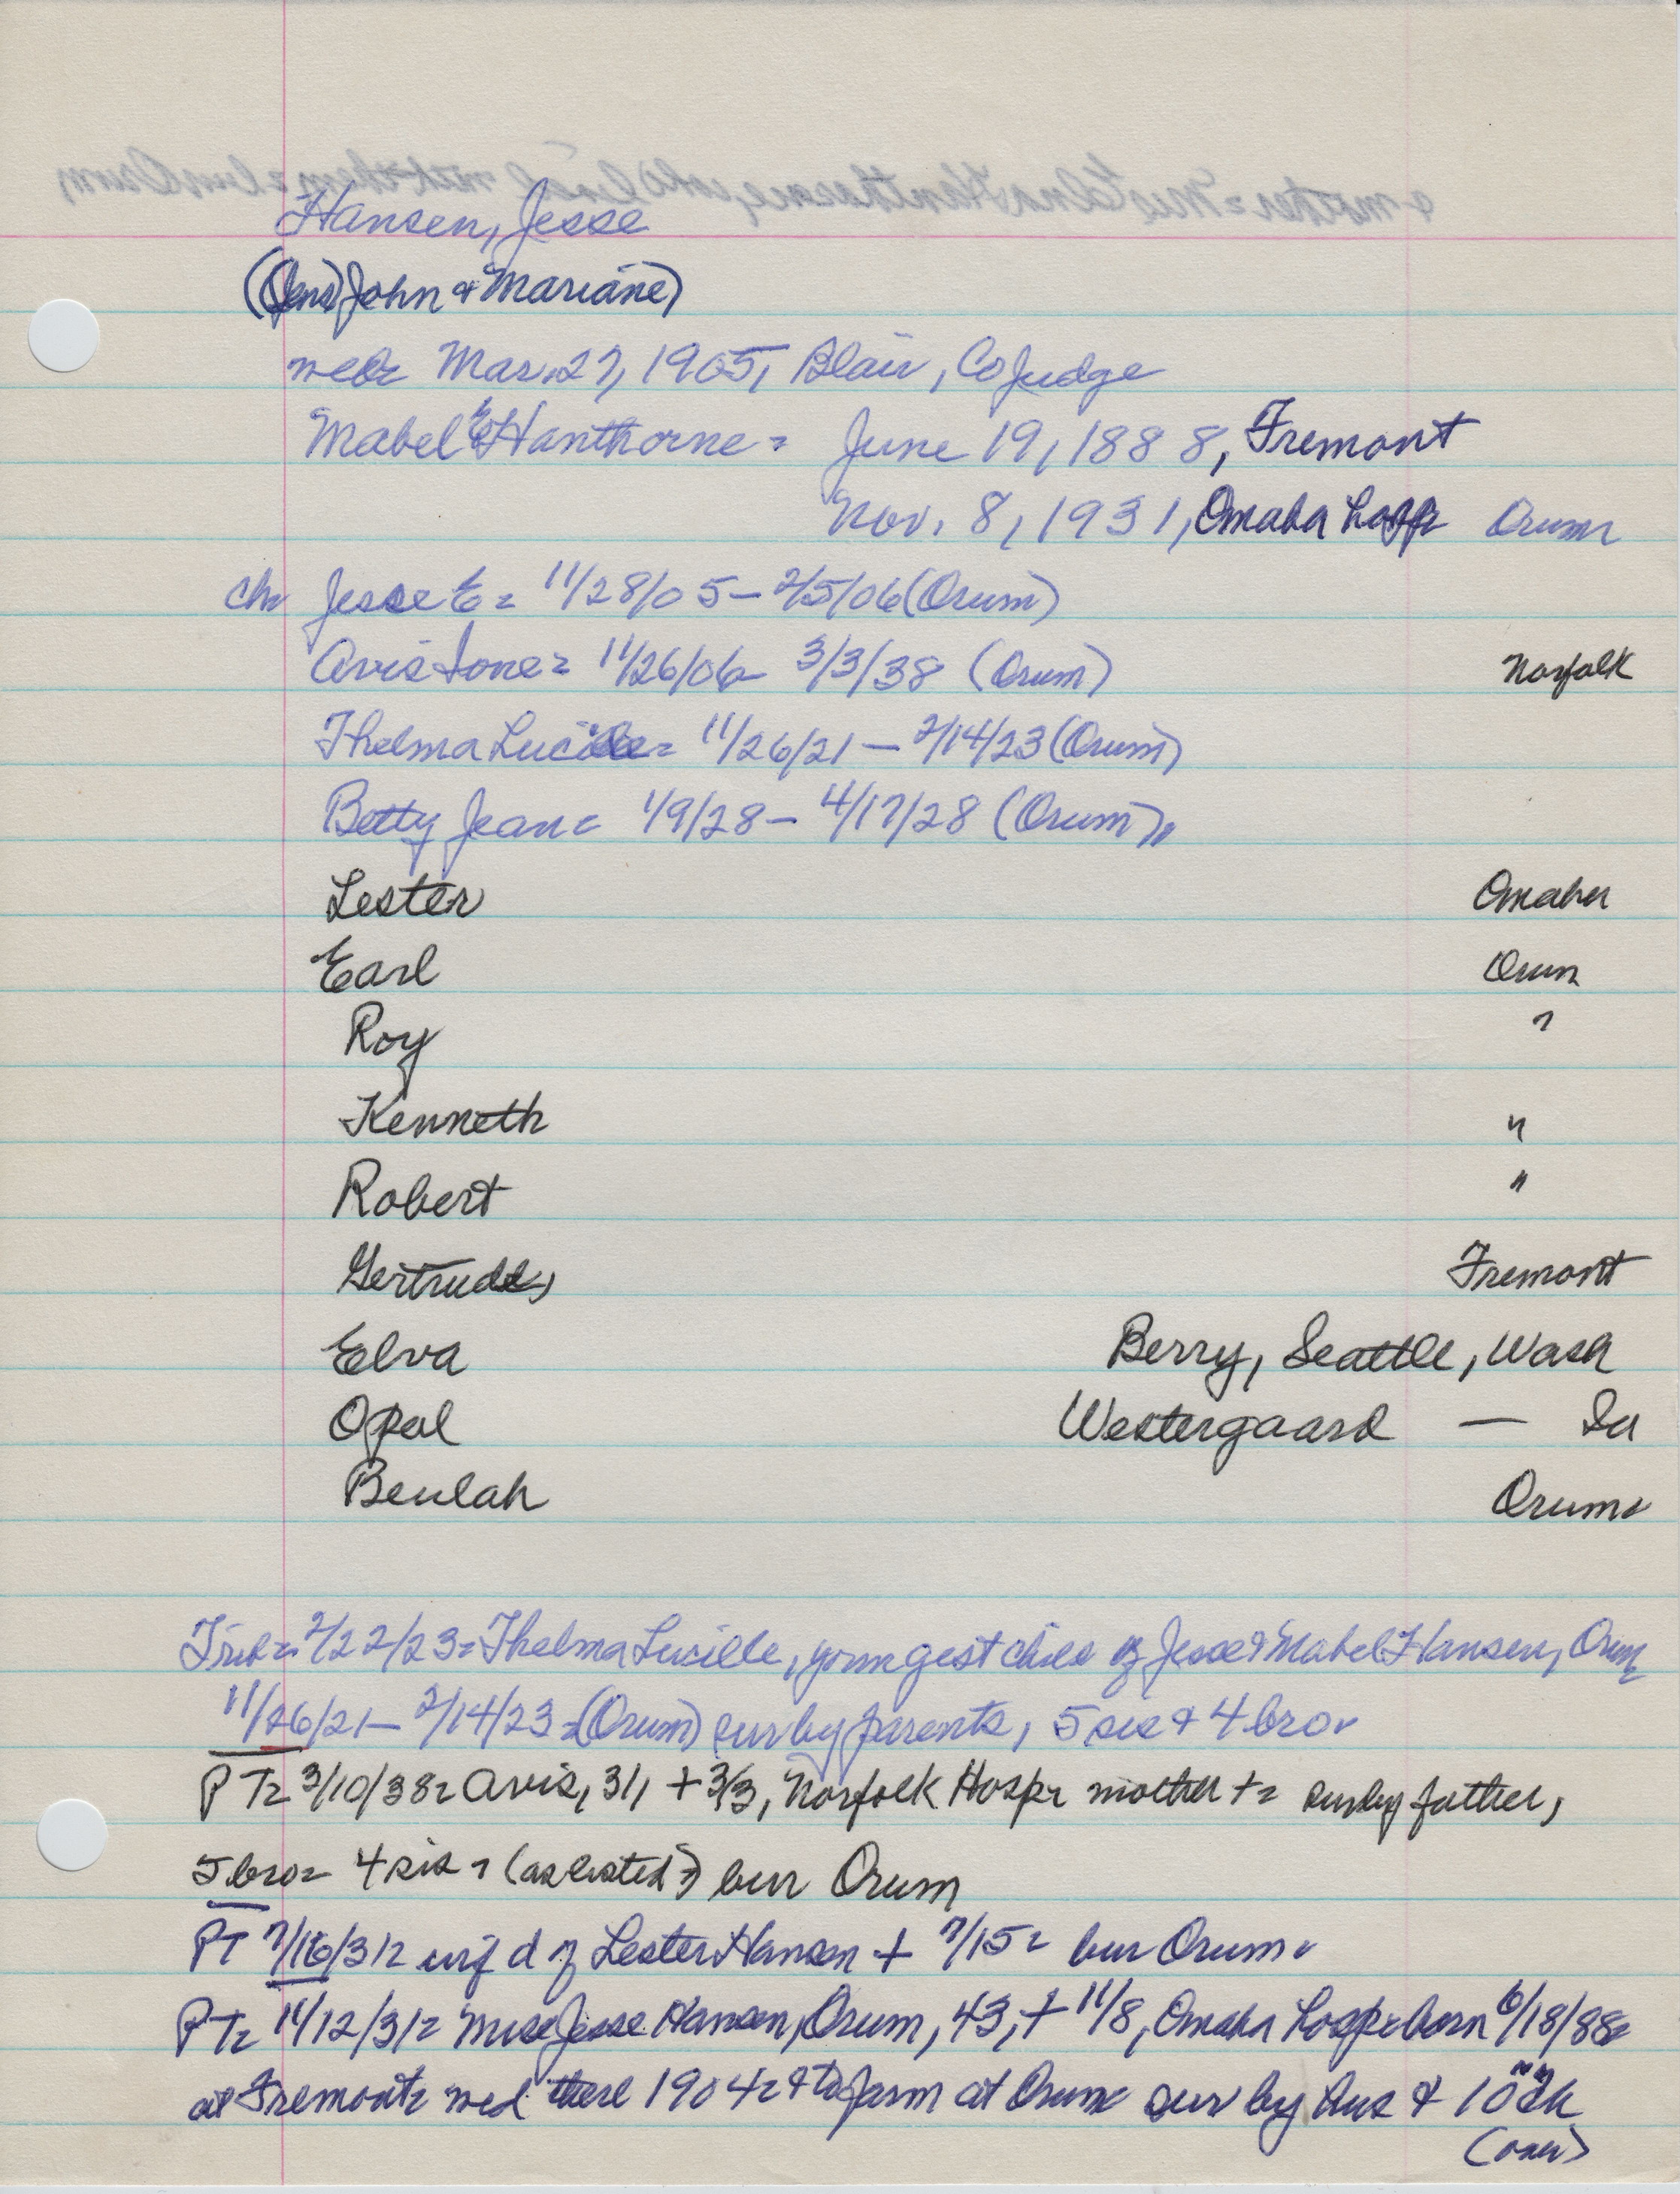 Hansen, Jesse
((Jens) John & Mariane)
wed= Mar. 27, 1905, Blair, Co Judge
Mabel E Hanthorne = June 19, 1888, Fremont
Nov. 8, 1931, Omaha hosp Orum
ch= Jesse E = 11/28/05 - 2/5/06 (Orum)
Avis Ione = 11/26/06 - 3/3/38 (Orum) Norfolk
Thelma Lucille = 11/26/21 - 2/14/23 (Orum)
Betty Jean = 1/9/28 - 4/17/28 (Orum)
Lester Omaha
Earl Orum
Roy "
Kenneth "
Robert "
Gertrude, Fremont
Elva Berry, Seattle, Wash
Opal Westergaard — Ia
Beulah Orum
Trib = 2/22/23 = Thelma Lucille, youngest child of Jesse & Mabel Hansen, Orum
11/26/21 - 2/14/23 = (Orum) sur by parents, 5 sis & 4 bro
PT = 3/10/38 = Avis, 31, + 3/3, Norfolk Hosp = mother + = sur by father,
5 bro = 4 sis = (as listed) bur Orum
PT 7/16/31 = inf d of Lester Hansen + 7/15 = bur Orum
PT = 11/12/31 = Mrs Jesse Hansen, Orum, 43, + 11/8, Omaha hosp = born 6/18/88 =
at Fremont = wed there 1904 = & to farm at Orum = sur by hus & 10 ch
(over)